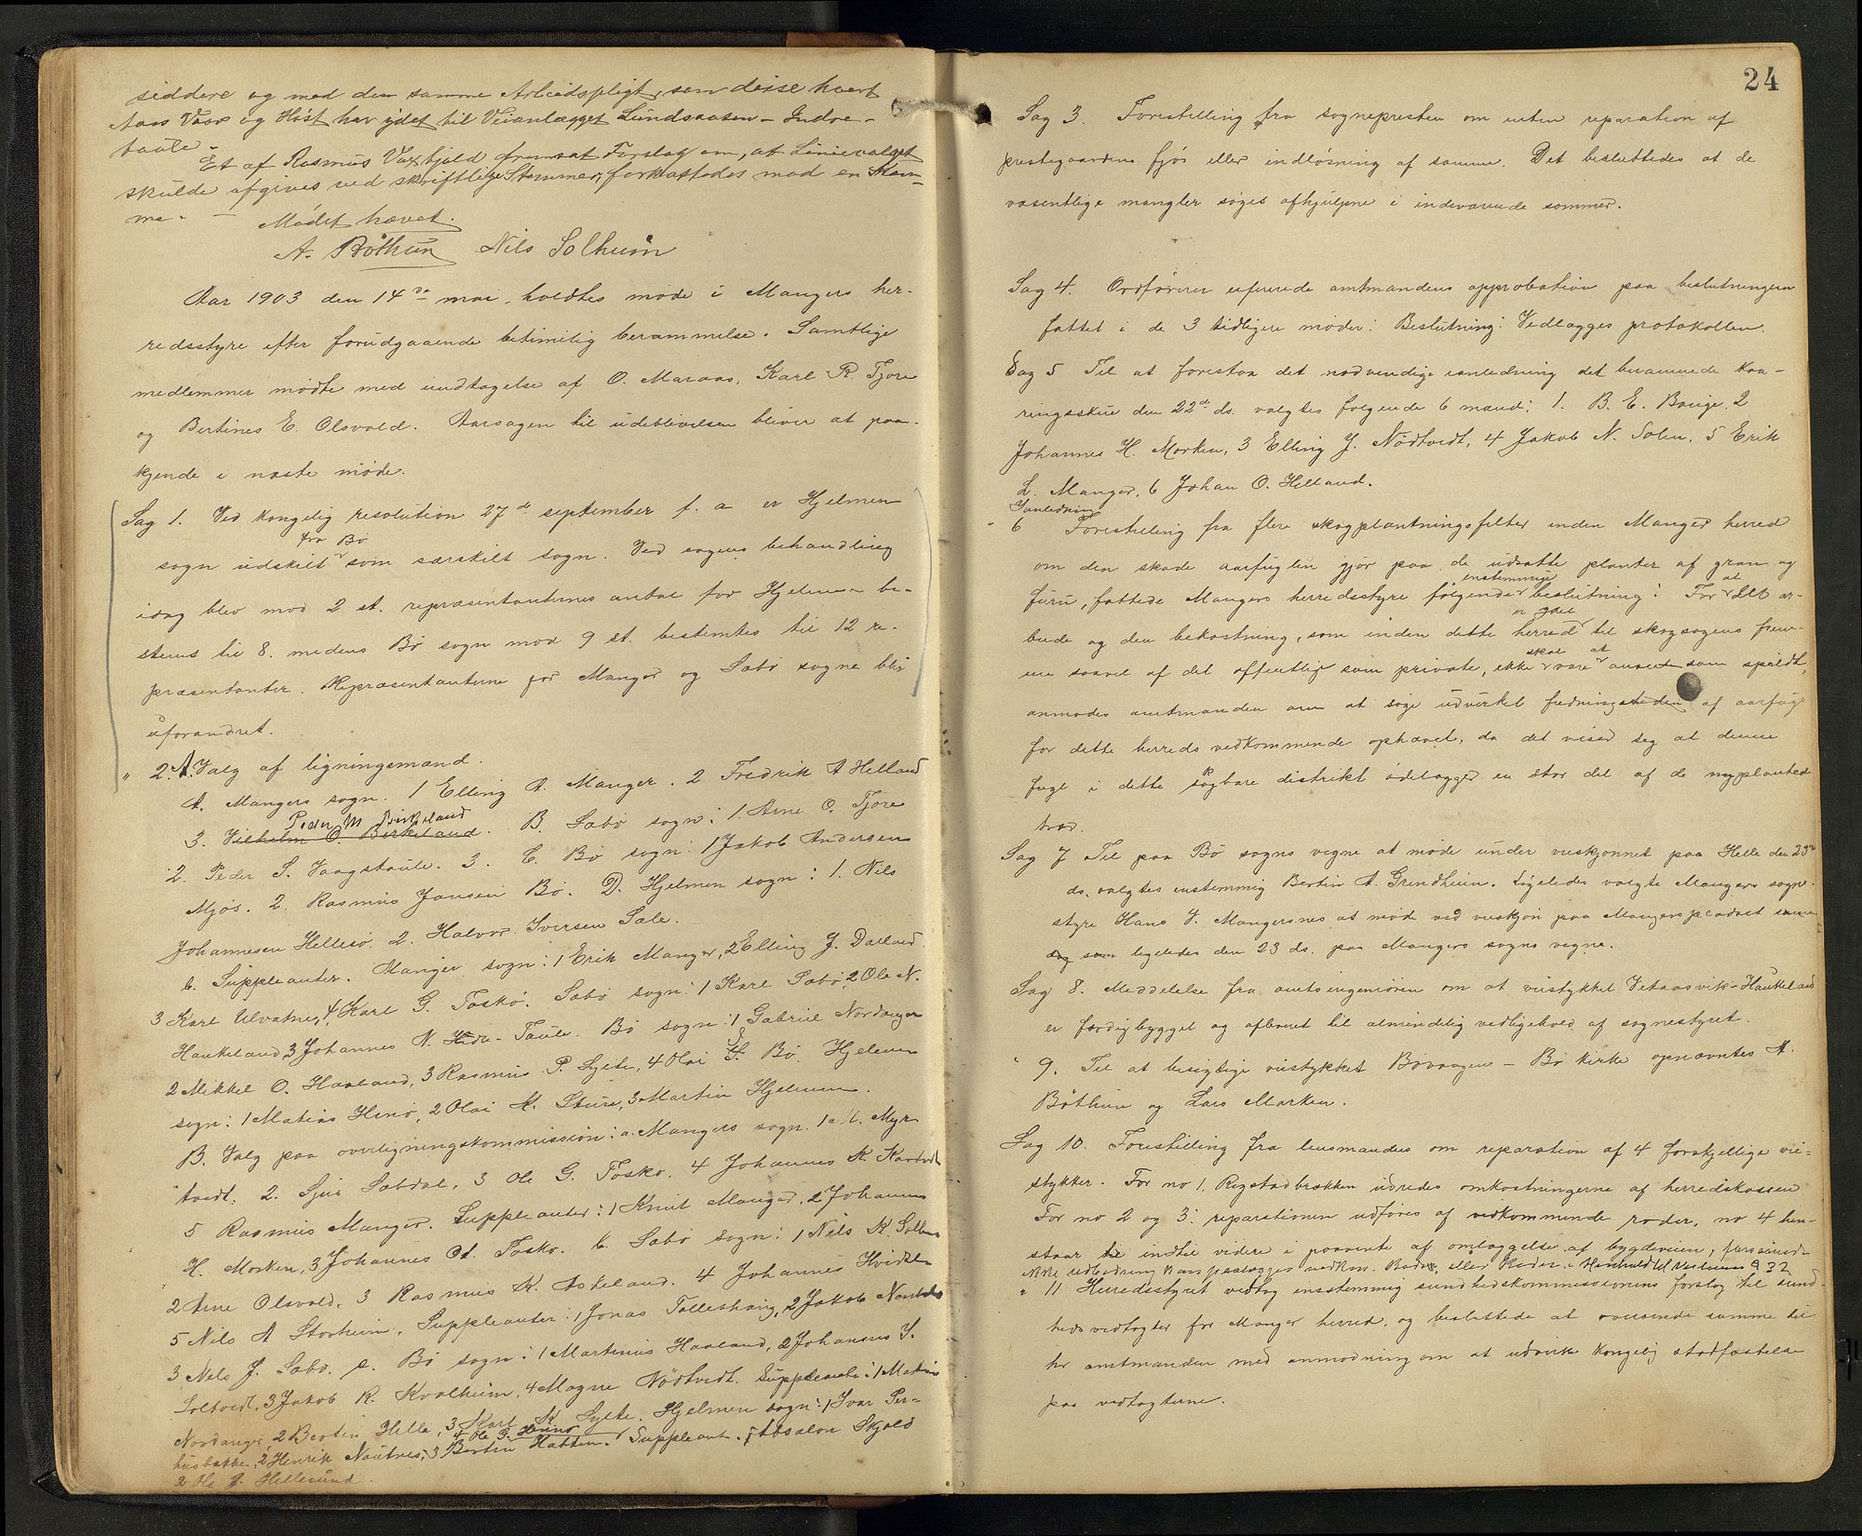 siddere og med den samme Arbeidspligt, som disse hvert
Aars Vaar og Høst har ydet til Veianlægget Lundsaasen - Indre-
taule -
Et af Rasmus Vaxhjeld fremsat Forslag om, at Linievalget
skulde afgives ved skriftlige Stemmer, forkastedes mod en Stem-
me. -
Mødet hævet.
A. Bøthun Nils Solheim
Aar 1903 den 14de mai, holdtes møde i Mangers her-
redsstyre efter forudgaaende betimelig berammelse. Samtlige
medlemmer mødte med undtagelse af O. Maraas, Karl R. Fjore
og Bertines E. Olsvold. Aarsagen til udeblivelsen bliver at paa-
kjende i næste møde.
Sag 1. Ved kongelig resolution 27de september f. a. er Hjelmen
fra Bø
sogn udskilt som særskilt sogn. Ved sagens behandling
idag blev mod 2 st. repræsentanternes antal for Hjelmen be-
stemt til 8. medens Bø sogn mod 9 st. bestemtes til 12 re-
præsentanter. Repræsentanterne for Manger og Sæbø sogne blir
uforandret.
" 2. A. Valg af ligningsmænd.
A. Mangers sogn. 1 Elling A. Manger. 2 Fredrik A Helland
Peder M Birkeland
3. Vilhelm O. Birkeland. B. Sæbø sogn: 1. Arne O. Fjore
2. Peder S. Vaagstaule. 3. C. Bø sogn: 1 Jakob Andersen
Mjøs. 2. Rasmus Jansen Bø. D. Hjelmen sogn: 1. Nils
Johannesen Hellesø. 2. Halvor Iversen Sæle.
b. Suppleanter. Manger sogn: 1 Erik Manger, 2 Elling J. Dalland
3 Karl Ulvatne, 4 Karl G. Toskø. Sæbø sogn: 1 Karl Sæbø, 2 Ole N.
Haukeland, 3 Johannes N. Indre-Taule. Bø sogn: 1 Gabriel Nordanger
2 Mikkel O. Haaland, 3 Rasmus P. Sylte, 4 Olai J. Bø. Hjelmen
sogn: 1 Matias Henø, 2 Olai A. Sture, 3 Martin Hjelmen.
B. Valg paa overligningskommission: a. Mangers sogn. 1 A. Myr-
tvedt. 2. Sjur Sæbdal, 3 Ole G. Toskø. 4 Johannes K. Kartvedt
5 Rasmus Manger. Suppleanter: 1 Knut Manger, 2 Johannes
H. Morken, 3 Johannes A. Toskø. b. Sæbø sogn: 1 Nils K. Solheim
2 Arne Olsvold, 3 Rasmus K. Askeland. 4 Johannes Hvidsten
5 Nils A Storheim. Suppleanter: 1 Jonas Tolleshaug, 2 Jakob
3 Nels J. Sæbø. c. Bø sogn: 1 Martinus Haaland, 2 Johannes J.
Soltvedt, 3 Jakob R. Kvalheim, 4 Magne Nødtvedt. Suppleanter: 1 Martin
Nordanger, 2 Bertin Helle, 3 Karl K. Sylte. Hjelmen sogn: 1 Ivar Per-
4 Ole G. Henø
husbakken, 2 Henrik Nautnes, 3 Bertin Hatten. Suppleant. 1 Absalon Skjold
2 Ole J. Hellesund.
24
Sag 3. Forestilling fra sognepresten om enten reparation af
prestegaardens fjøs eller indløsning af samme. Det besluttedes at de
væsentlige mangler søges afhjulpne i indeværende sommer.
Sag 4. Ordføreren refererede amtmandens approbation paa beslutningen
fattet i de 3 tidligere møder: Beslutning: Vedlægges protokollen.
Sag 5 Til at forestaa det nødvendige i anledning det berammede kaa-
ringsskue den 22de ds. valgtes følgende 6 mænd: 1. B. E. Bauge, 2
Johannes H. Morken, 3 Elling J. Nødtvedt, 4 Jakob N. Solen, 5 Erik
L. Manger, 6 Johan O. Helland.
I anledning
" 6 Forestilling fra flere skogplantningsfelter inden Manger herred
om den skade aarfuglen gjør paa de udsatte planter af gran og
enstemmige at
furu, fattede Mangers herredsstyre følgende beslutning: For det ar-
er ydet
beide og den bekostning, som inden dette herred til skogsagens frem-
skal at
me saavel af det offentlige som private, ikke være anseet som spildt,
anmodes amtmanden om at søge udvirket fredningstiden af aarfugl
for dette herreds vedkommende ophævet, da det viser sig at denne
fugl i dette skogbare distrikt ødelægger en stor del af de nyplantede
træer.
Sag 7 Til paa Bø sogns vegne at møde under veiskjønnet paa Helle den 23de
ds. valgtes enstemmig Bertin A. Grindheim. Ligeledes valgte Mangers sogne-
styre Hans J. Mangersnes at møde ved veiskjøn paa Mangers
og som ligeledes den 23 ds. paa Mangers sogns vegne.
Sag 8. Meddelelse fra amtsingeniøren om at veistykket Vetaasvik-Haukeland
er færdigbygget og afleveret til almindelig vedligehold af sognestyret.
" 9. Til at besigtige veistykket Bøvaagen - Bø kirke opnævntes A.
Bøthun og Lars Marken.
Sag 10. Forestilling fra lensmanden om reparation af 4 forskjellige vei-
stykker. For no 1. Rogstadbrækken udredes omkostningerne af herredskassen
For no 2 og 3: reparationen udføres af vedkommende roder, no 4 hen-
staar til indtil videre i paavente af omlæggelse af bygdeveien, forsaavidt
ikke udbedring kan paalægges vedkom. Rode, eller Roder i Henhold til Veilovens § 32
" 11 Herredsstyret vedtog enstemmig sundhedskommissionens forslag til sund-
hedsvedtægter for Manger herred, og besluttede at oversende samme til
hr amtmanden med anmodning om at udvirke kongelig stadfæstelse
paa vedtægterne.